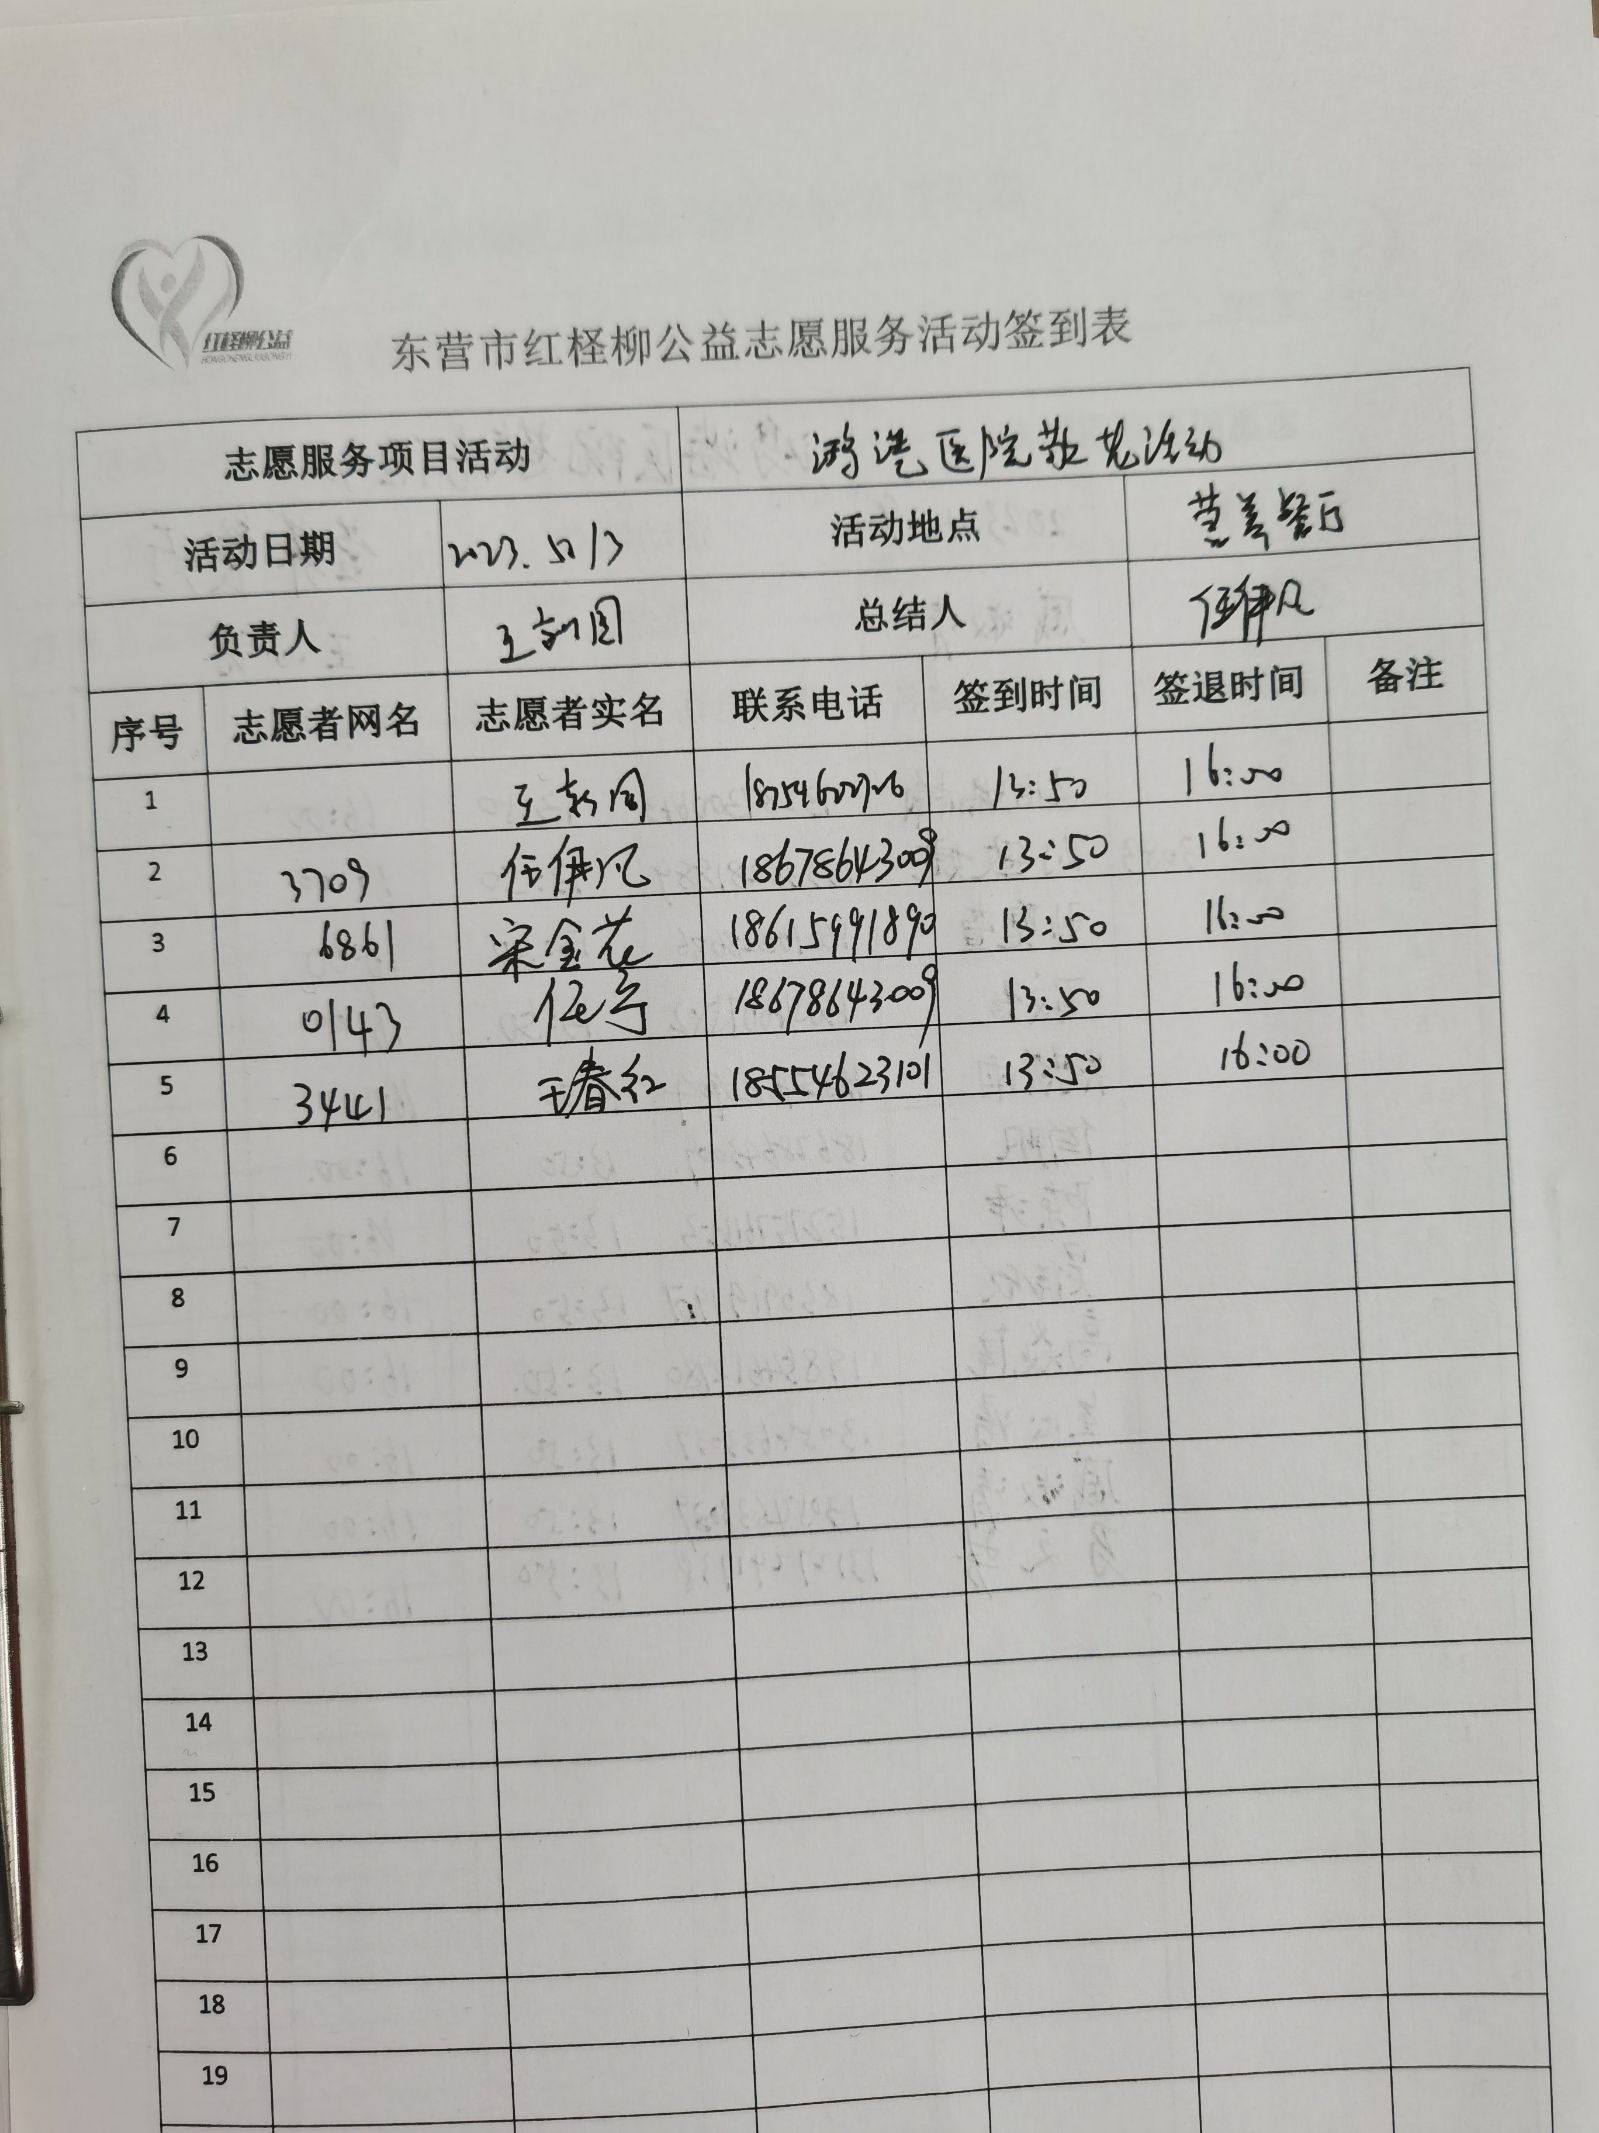 红柽柳公益
东营市红柽柳公益志愿服务活动签到表
志愿服务项目活动 鸿港医院敬老活动
活动日期 2023. 活动地点
负责人 总结人 任伊凡
序号 志愿者网名 志愿者实名 联系电话 签到时间 签退时间 备注
1 13:50 16:00
2 3709 任伊凡 18678643009 13:50 16:00
3 6861 宋金花 18615991890 13:50 16:00
4 0143 18678643009 13:50 16:00
5 3441 王春红 18554623101 13:50 16:00
6
7
8
9
10
11
12
13
14
15
16
17
18
19